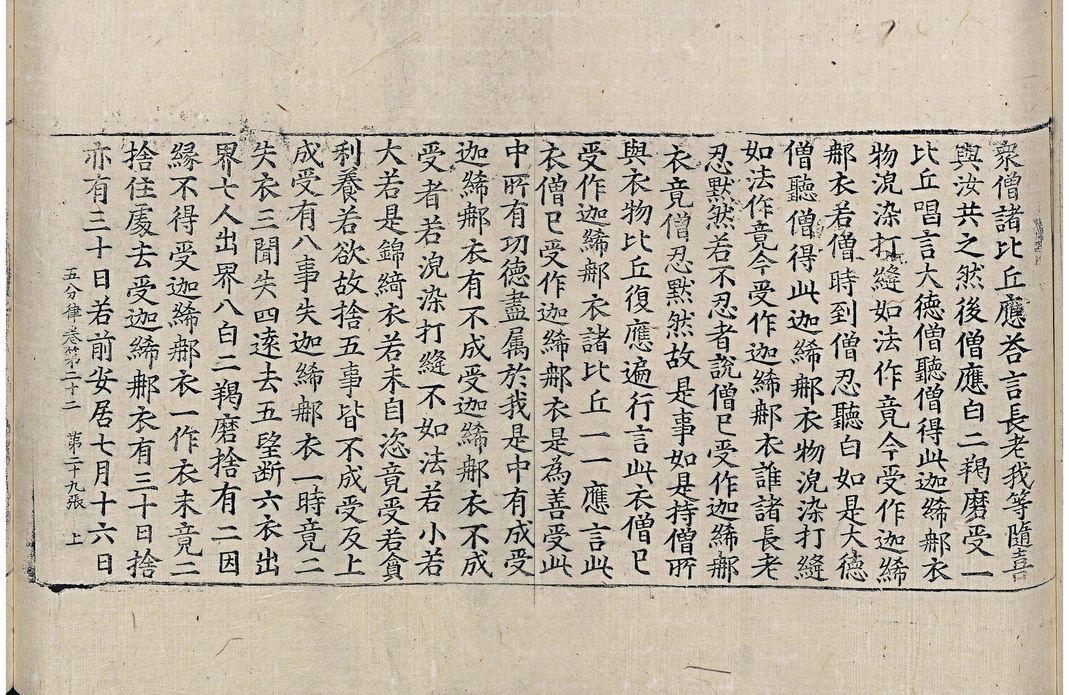 衆僧諸比丘應荅言長老我等隨喜
與汝共之然後僧應白二羯磨受一
比丘唱言大德僧聽僧得此迦絺䢴衣
物浣染打縫如法作竟今受作迦絺
䢴衣若僧時到僧忍聽白如是大德
僧聽僧得此迦絺䢴衣物浣染打縫
如法作竟今受作迦絺䢴衣誰諸長老
忍默然若不忍者說僧已受作迦絺䢴
衣竟僧忍默然故是事如是持僧所
與衣物比丘復應遍行言此衣僧已
受作迦絺䢴衣諸比丘一一應言此
衣僧已受作迦絺䢴衣是為善受此
中所有功德盡属於我是中有成受
迦絺䢴衣有不成受迦絺䢴衣不成
受者若浣染打縫不如法若小若
大若是錦綺衣若未自恣竟受若貪
利養若欲故捨五事皆不成受反上
成受有八事失迦絺䢴衣一時竟二
失衣三聞失四逺去五望断六衣出
界七人出界八白二羯磨捨有二因
縁不得受迦絺䢴衣一作衣未竟二
捨住處去受迦絺䢴衣有三十日捨
亦有三十日若前安居七月十六日
五分律卷苐二十二 第二十九張 上